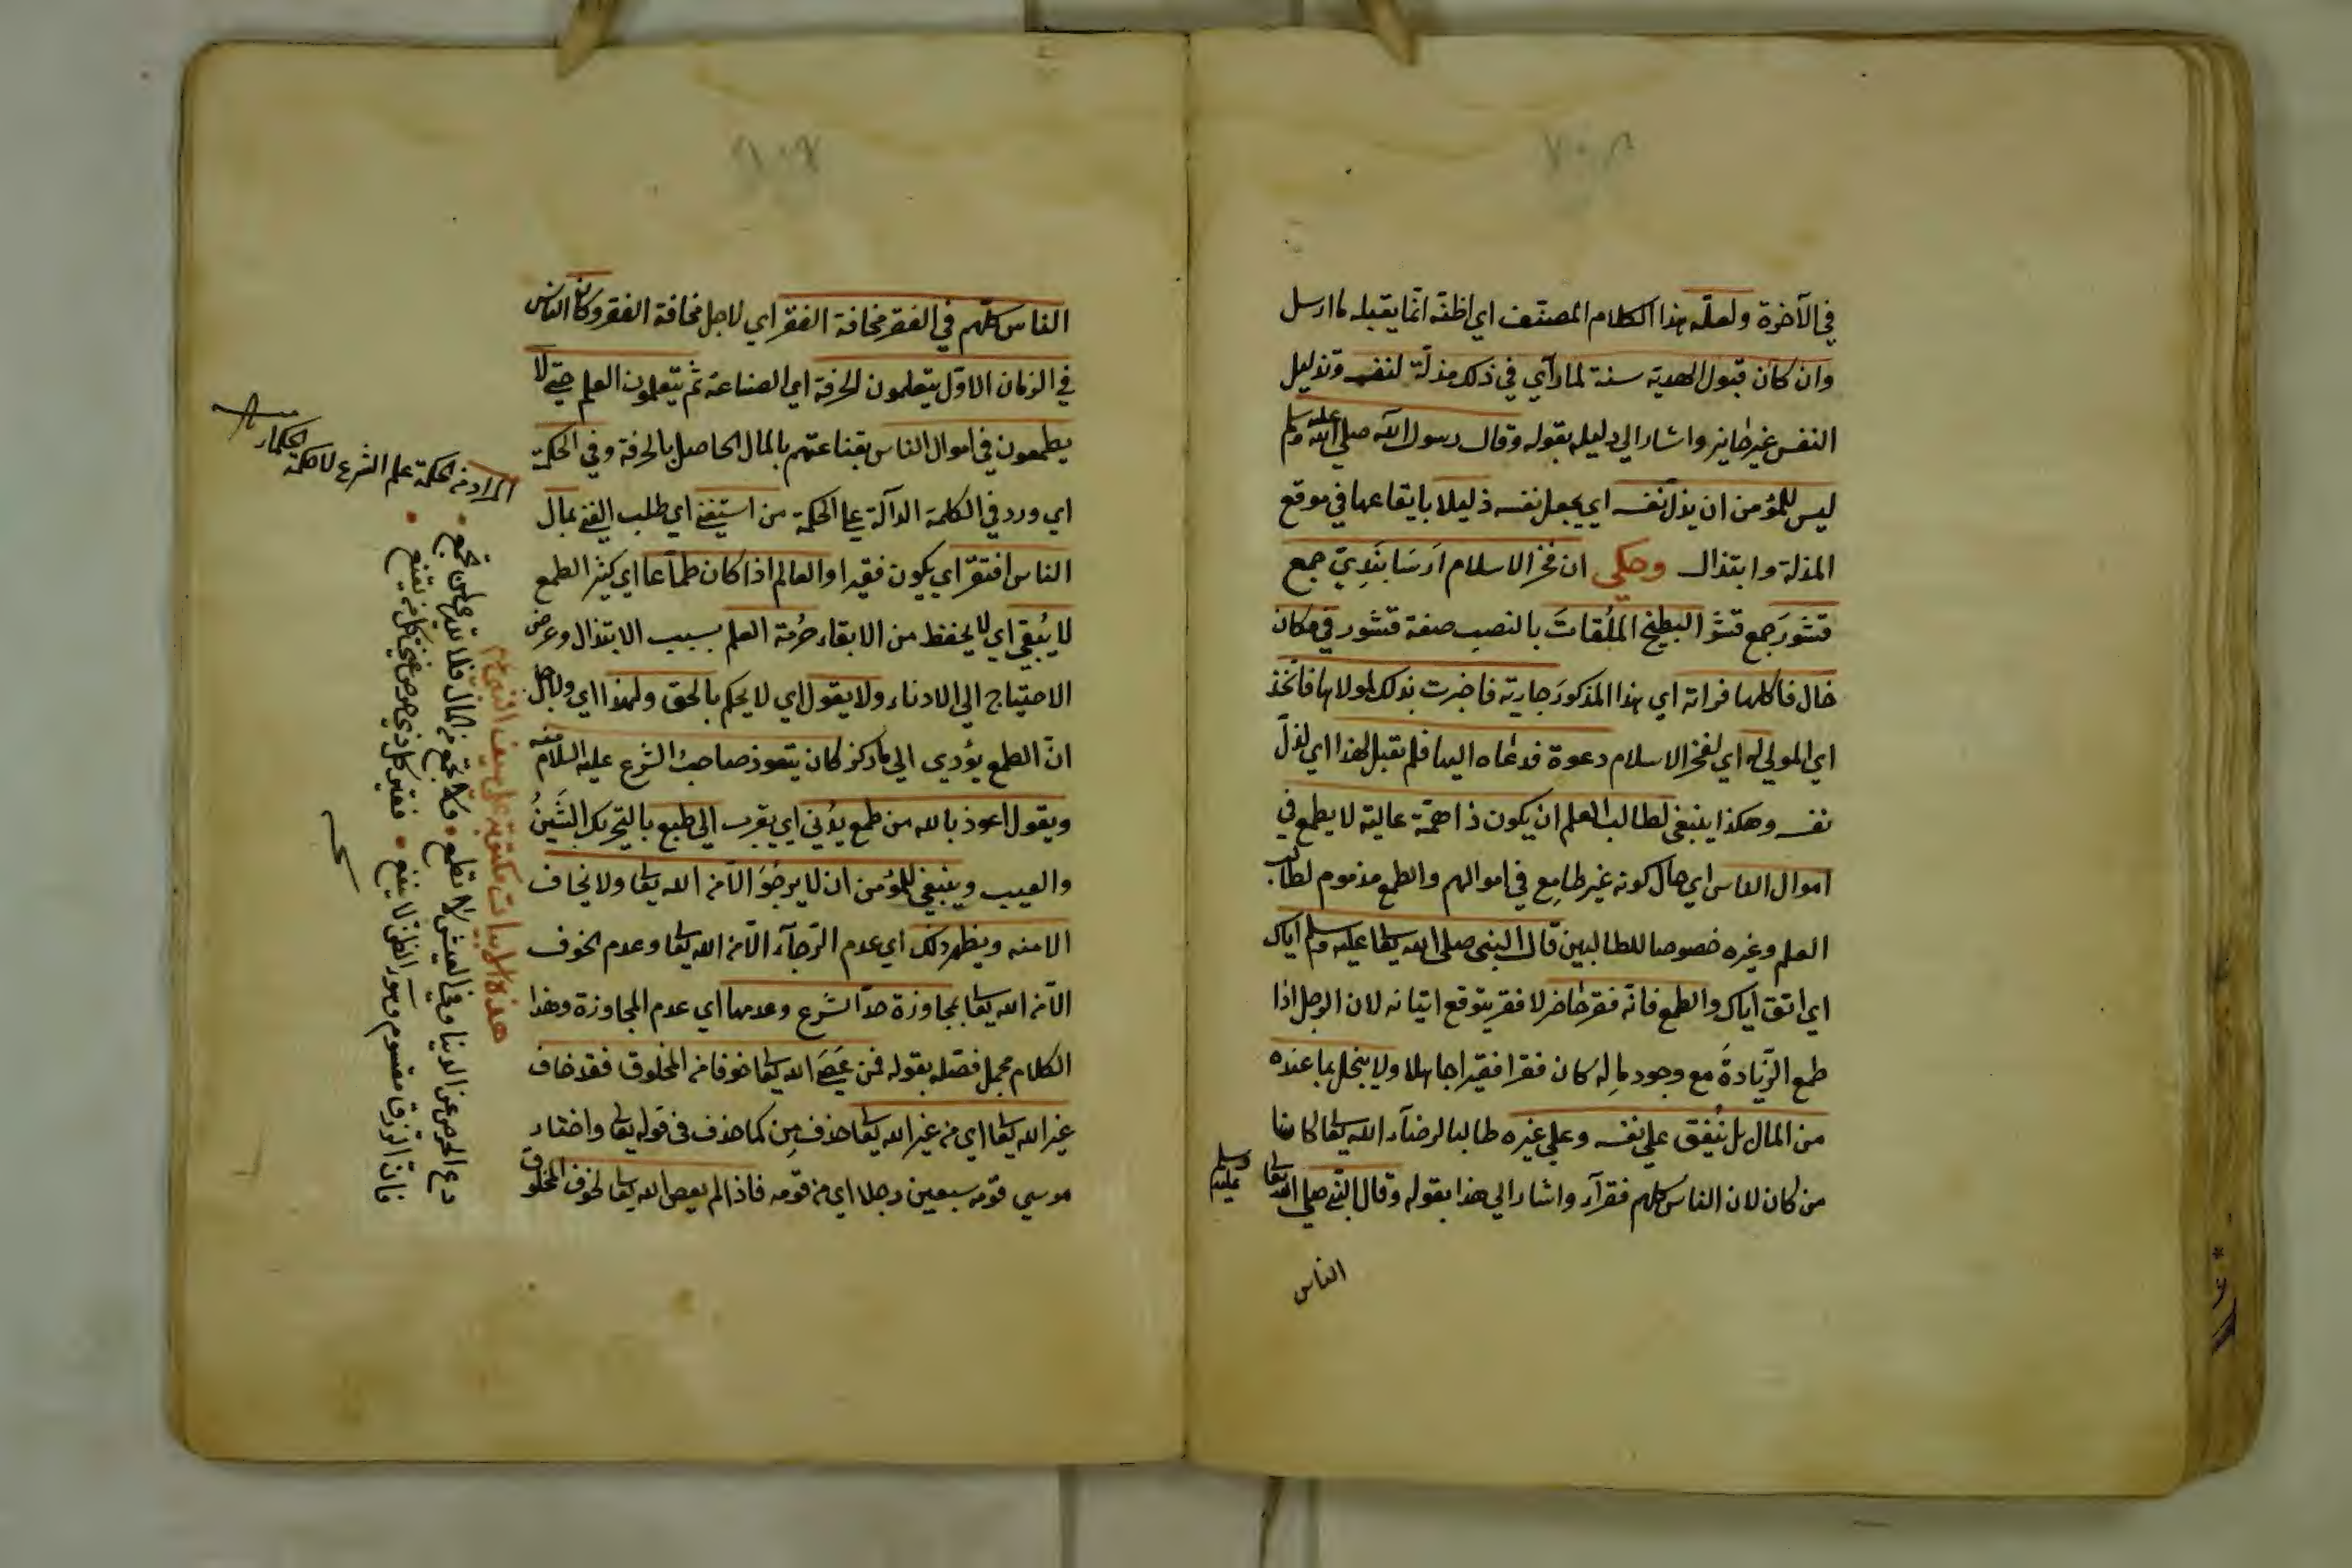 في الآخرة ولعلّه هذا الكلام المصنّف اي اظنّه انّما يقبله ما ارسل
وان كان قبول الهديّة سنة لما رأي في ذلك مذلّة لنفسه وتذليل
النفس غير جايز واشار الي دليله بقوله وقال رسول الله صلي الله عليه وسلم
ليس للمؤمن ان يذلّ نفسه اي يجعل نفسه ذليلا بايقاعها في موقع
المذلة وابتذال وحكي ان فخر الاسلام ارسَابَندِيّ جمع
قشورَ جمع قشر البطيخ الملُقاتَ بالنصب صفة قشور في مكان
خال فاكلها فراته اي هذا المذكورَ جارية فاخبرت بذلك لمولاها فاتّخذ
اي المولي له اي لفخر الاسلام دعوة فدعاه اليها فلم يقبل لهذا اي لذلّ
نفسه وهكذا ينبغي لطالب العلم ان يكون ذا همّة عالية لا يطمع في
اموال الناس اي حال كونه غير طامِع في اموالهم والطمع مذموم لطالب
العلم وغيره خصوصا للطالبين قال النبي صلى الله تعالى عليه وسلم اياك
اي اتق اياك والطمع فانّه فقر حاضر لا فقر يتوقع اتيانه لان الرجل اذا
طمع الزّيادةَ مع وجود مالِه كان فقرا فقيرا جاهلا ولا يبخل بما عنده
من المال بل يُنفق علي نفسه وعلي غيره طالبا لرضآء الله تعالى كائنا
من كان لان الناس كلهم فقرآء واشار الي هذا بقوله وقال النّبي صلي الله تعالى عليه وسلم
الناس
الناس كلّهم في الفقر مخافة الفقر اي لاجل مخافة الفقر وكان الناس
في الزمان الاوّل يتعلمون الحرفة اي الصناعة ثم يتعلمون العلم حتّي لا
يطمعون في اموال الناس بقناعتهم بالمال الحاصل بالحرفة وفي الحكمة
اي ورد في الكلمة الدآلة علي الحكمة من استغني اي طلب الغني بمال
الناس افتقرَ اي يكون فقيرا والعالم اذا كان طمّاعا اي كثير الطمع
لا يُبقي اي لا يحفظ من الابقاء حُرمة العلم بسبب الابتذال وعرض
الاحتياج الي الادناء ولا يقول اي لا يحكم بالحق ولهذا اي ولاجل
انّ الطمع يؤدي الي ما ذكر كان يتعوذ صاحبُ الشرع عليه السلام منه
ويقول اعوذ بالله من طمع يُدْني اي يقرب الي طبع بالتحريك الشَينُ
والعيب وينبغي للمؤمن ان لا يرجُوَ الّا من الله تعالى ولا يخاف
الا منه ويظهر ذلك اي عدم الرّجآء الّا من الله تعالى وعدم الخوف
الّا من الله تعالى بمجاوزة حدّ الشرع وعدمها اي عدم المجاوزة وهذا
الكلام مجمل فصّله بقوله فمن عَصَي الله تعالى خوفا من المخلوق فقد خاف
غير الله تعالى اي من غير الله تعالى حذف مِن كما حذف في قوله تعالى واختار
موسي قومه سبعين رجلا اي من قومه فاذا لم يعص الله تعالى لخوف المخلوق
المراد من الحكمة علم الشرع لا حكمة
الحكماء
هذه الابيات مكتوبة علي سيف
دع الحرص عن الدنيا وفي العيش لا تطمع • ولا تجمع من المال فلا تدري لمن تجمع •
فان الرزق مقسوم وسوء الظن لا ينفع • فقير كل ذي حرص غني كل من يقنع •